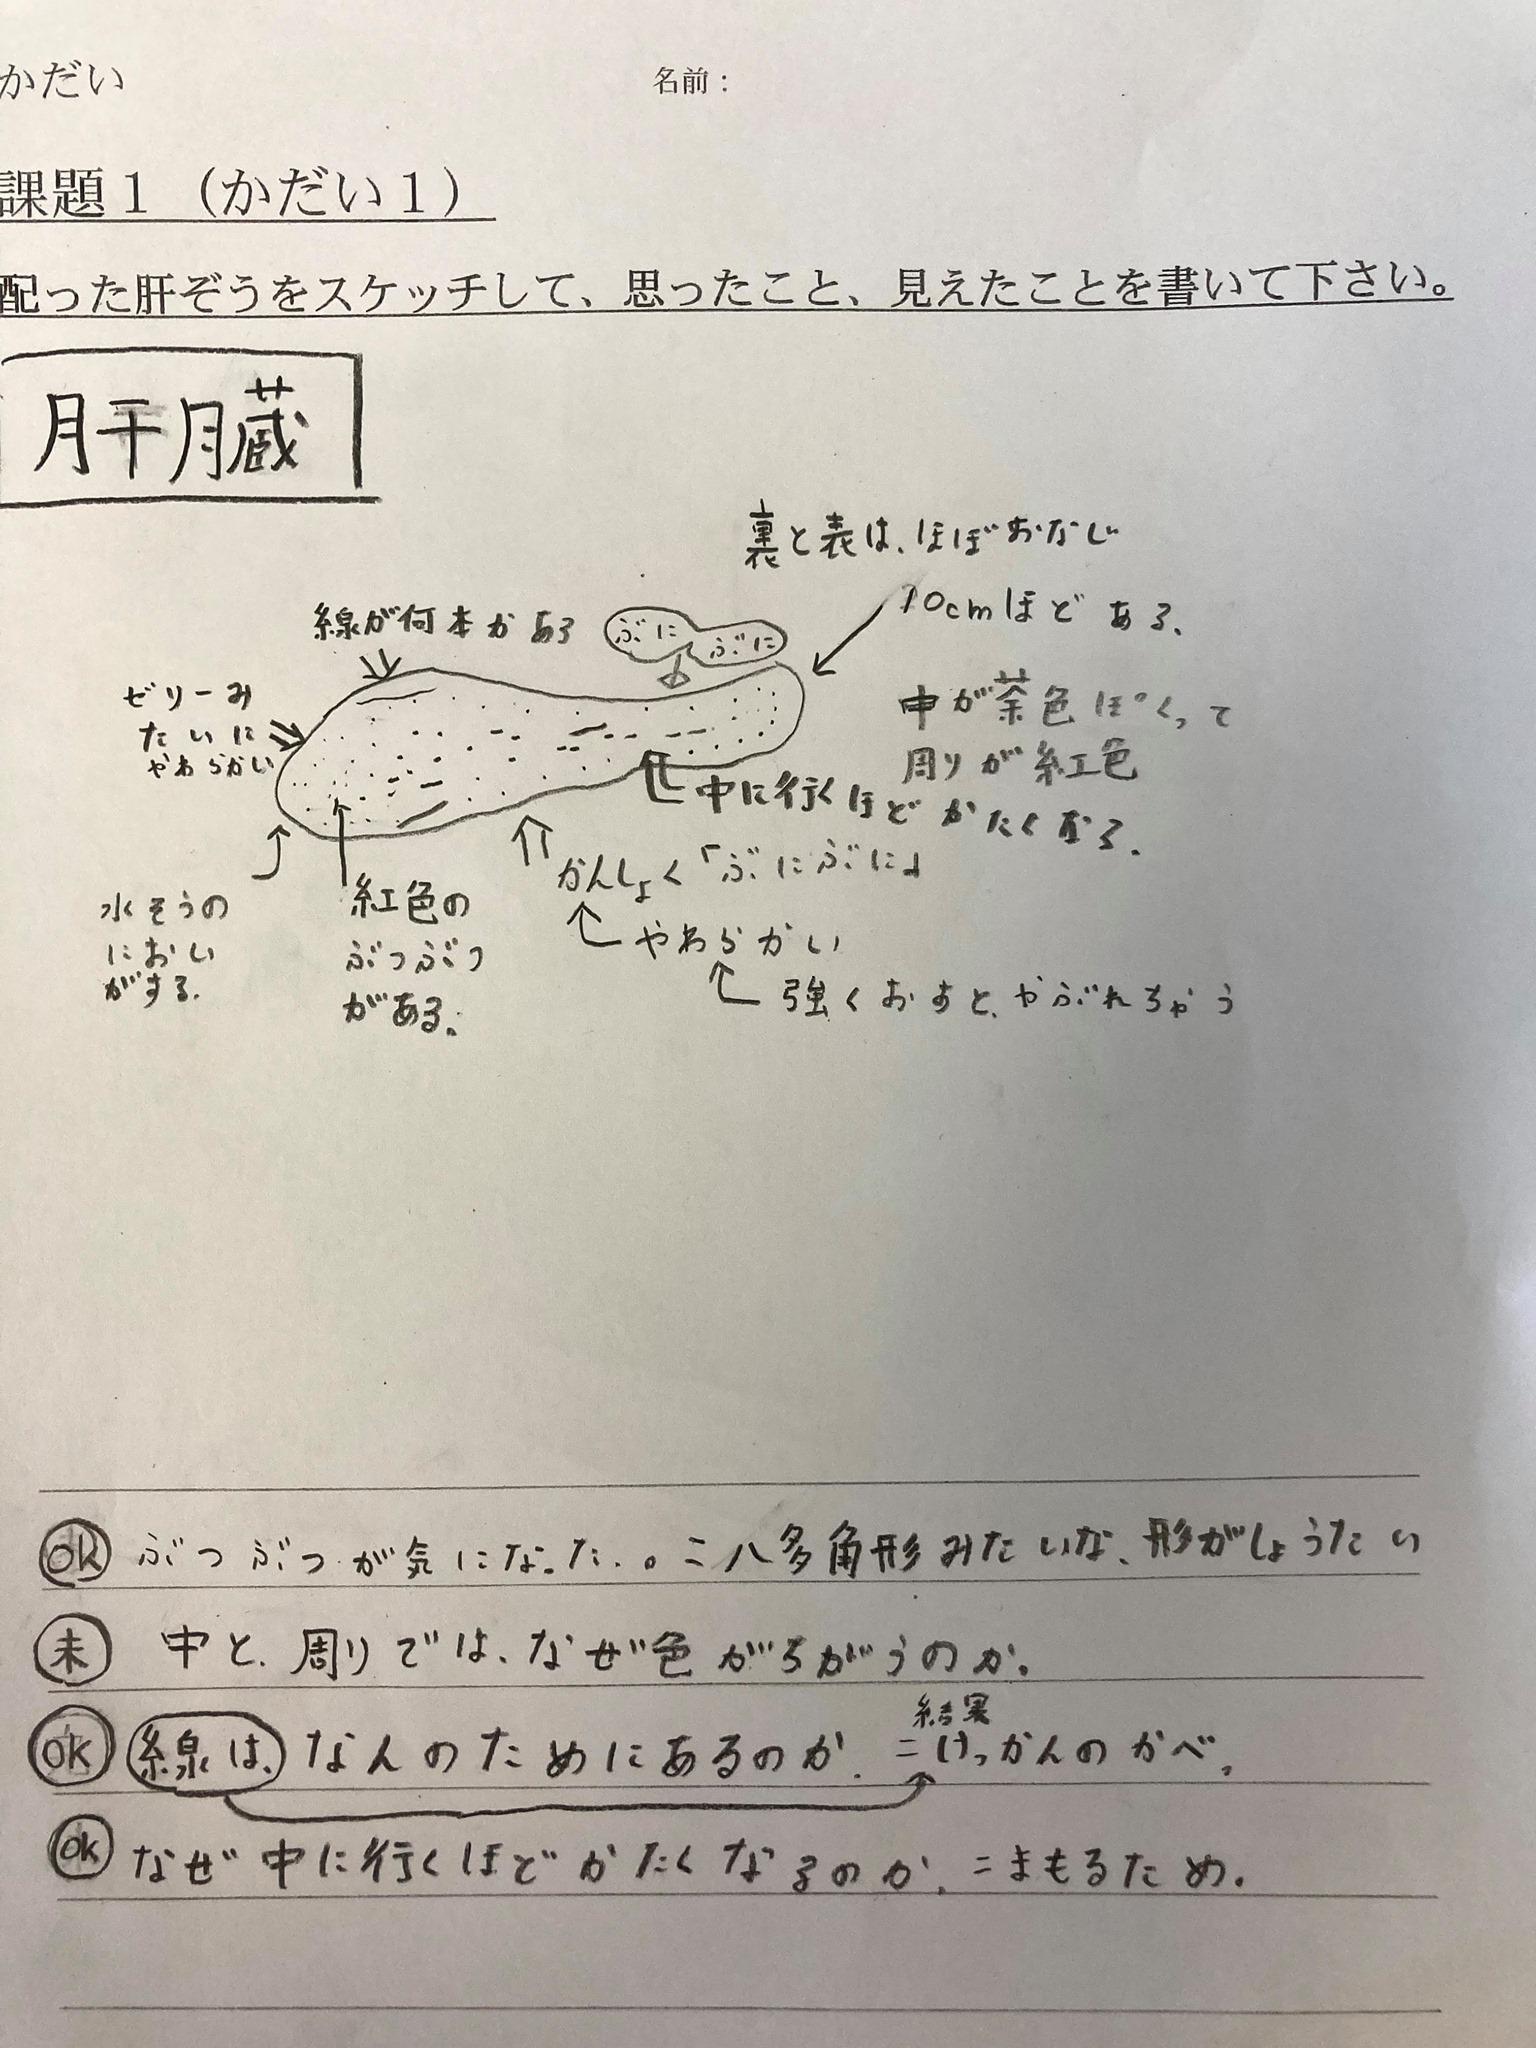 かだい
名前：
課題１（かだい１）
配った肝ぞうをスケッチして、思ったこと、見えたことを書いて下さい。
肝臓
裏と表は、ほぼおなじ
10cmほどある、
線が何本かある
ぶに
ぶに
ゼリーみ
たいに
やわらかい
中が茶色ぽくって
周りが紅色
中に行くほどかたくなる.
かんしょく「ぶにぶに」
やわらかい
強くおすと、やぶれちゃう
水そうの
におい
がする.
紅色の
ぶつぶつ
がある.
ok ぶつぶつが気になった.。=八多角形みたいな、形がしょうたい
未 中と、周りでは、なぜ色がちがうのか.
結果
ok 線は、なんのためにあるのか. =けっかんのかべ,
ok なぜ中に行くほどかたくなるのか, =まもるため.